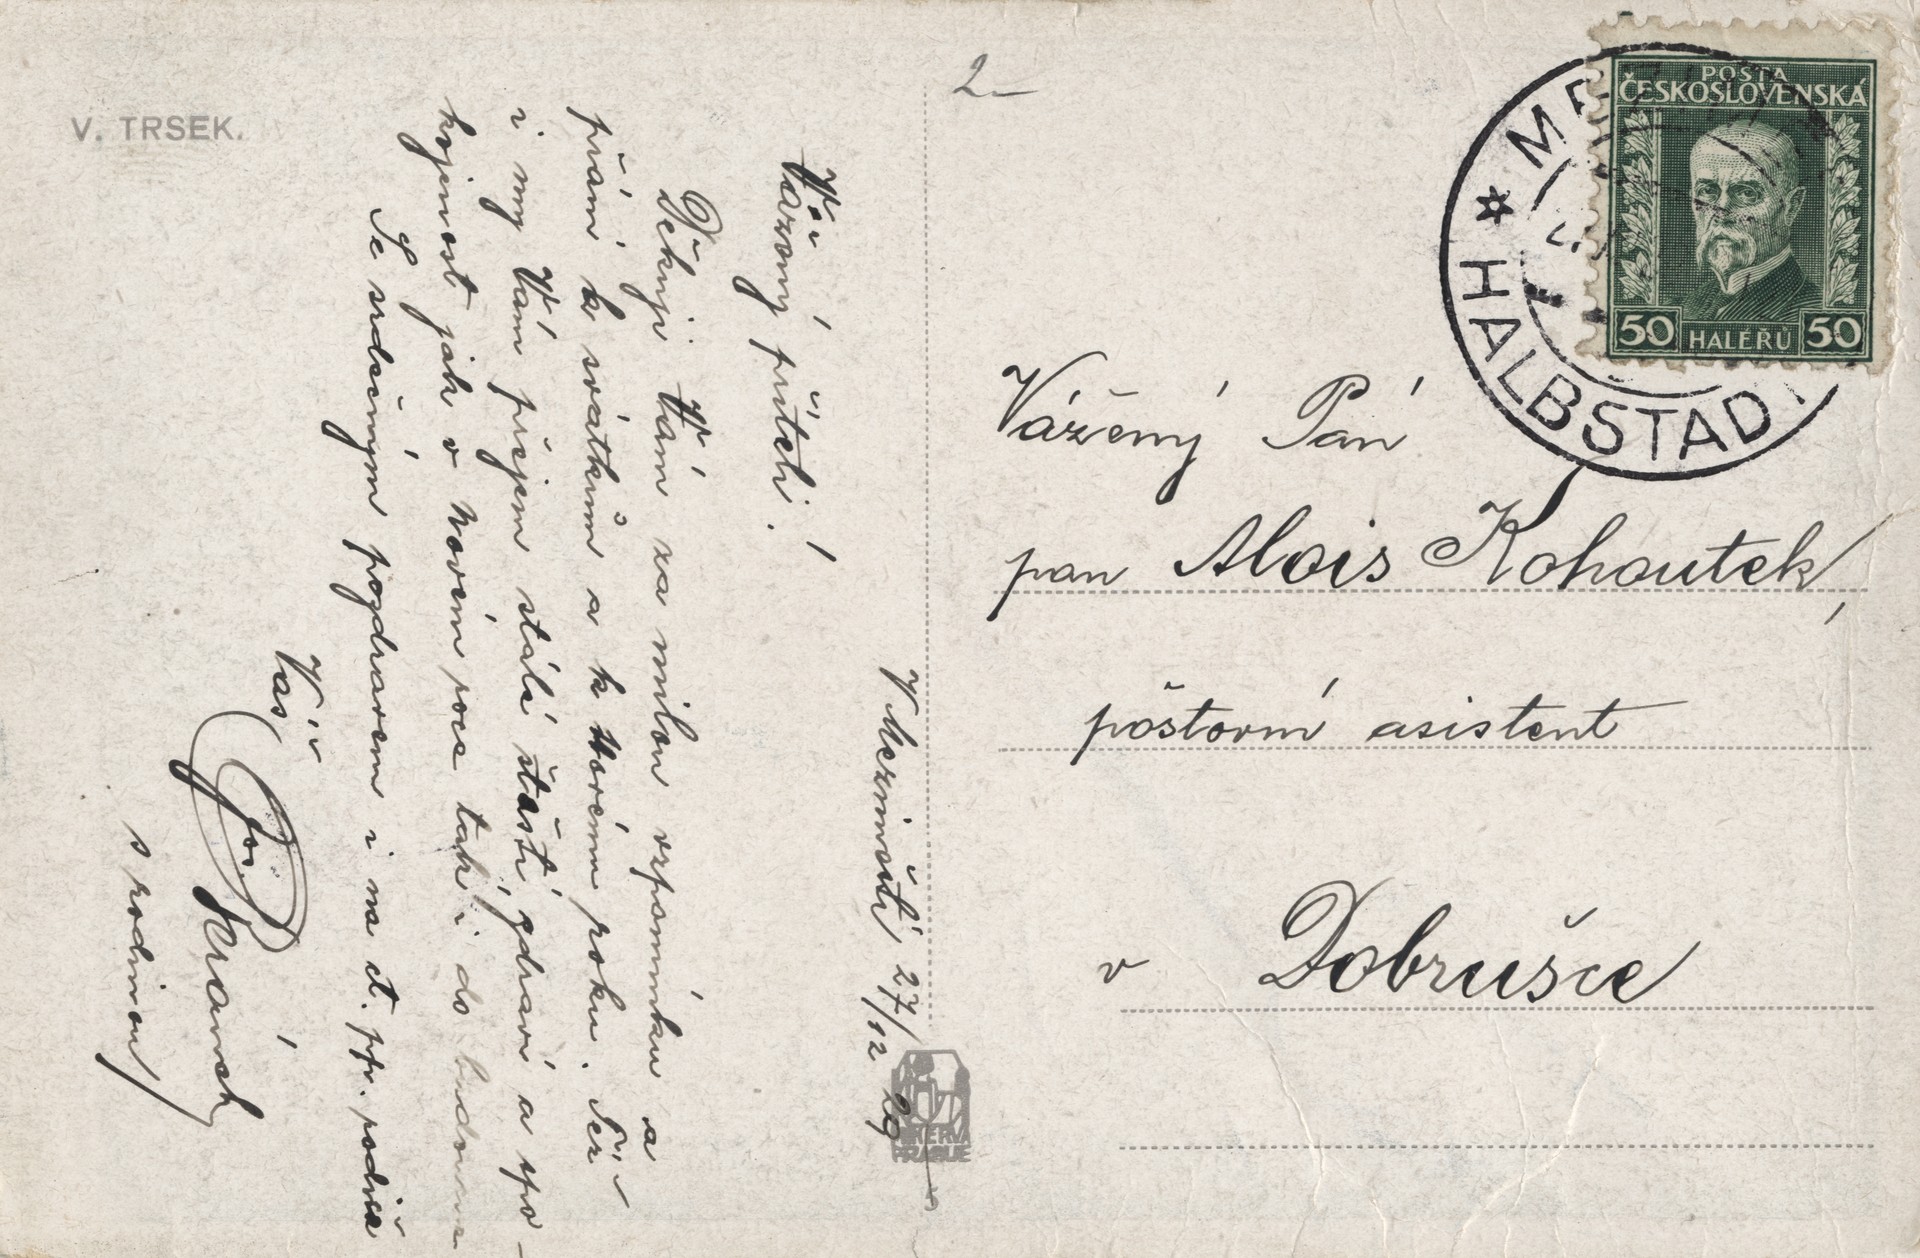 V. TRSEK.
2–
V Meziměstí 27/12 29
Vážený příteli!
Děkuji Vám za milou vzpomínku a
přání k svátkům a k Novému roku. Též
i my Vám přejem stálé štěstí, zdraví a spo-
kojenost jak v Novém roce tak i do budoucna
Se srdečným pozdravem i na ct. pp. rodiče
Váš
Jos.
s rodinou
POSTA
ČESKOSLOVENSKÁ
50 HALÉŘŮ 50
HALBSTADT
Vážený Pán
pan Alois Kohoutek,
poštovní asistent
v Dobrušce
MINERVA
PRAGUE